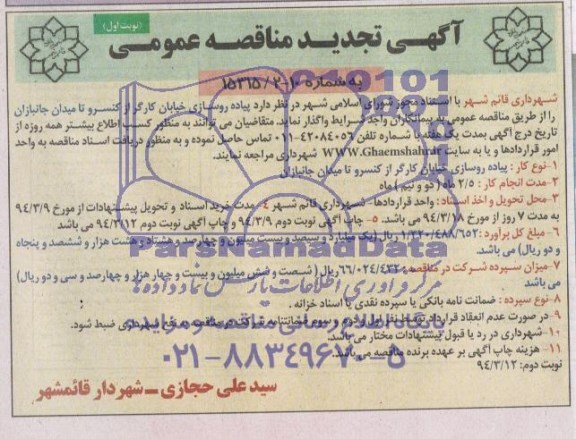 (نوبت اول)
آگهی تجدید مناقصه عمومی
به شماره ۱۵۳۱۵/۲-۱۰
شهرداری قائم شهر با استناد مجوز شورای اسلامی شهر در نظر دارد پیاده روسازی خیابان کارگر از کنسرو تا میدان جانبازان
را از طریق مناقصه عمومی به پیمانکاران واجد شرایط واگذار نماید. متقاضیان می توانند به منظور کسب اطلاع بیشتر همه روزه از
تاریخ درج آگهی بمدت یک هفته با شماره تلفن ۴۲۰۸۴۰۵۶-۰۱۱ تماس حاصل نموده و به منظور دریافت اسناد مناقصه به واحد
امور قراردادها و یا به سایت WWW.Ghaemshahr.ir شهرداری مراجعه نمایند.
۱-نوع کار : پیاده روسازی خیابان کارگر از کنسرو تا میدان جانبازان
۲-مدت انجام کار : ۲/۵ ماه (دو و نیم) ماه
۳-محل تحویل و اخذ اسناد: واحد قراردادها- شهرداری قائم شهر ۴-مدت خرید اسناد و تحویل پیشنهادات از مورخ ۹۴/۳/۹
به مدت ۷ روز از مورخ ۹۴/۳/۱۸ می باشد. ۵- چاپ آگهی نوبت دوم ۹۴/۳/۹ و چاپ آگهی نوبت دوم ۹۴/۳/۱۲ می باشد
۶-مبلغ کل برآورد : ۱/۳۲۰/۴۸۸/۶۵۲ ریال (یک میلیارد و سیصد و بیست میلیون و چهارصد و هشتاد و هشت هزار و ششصد و پنجاه
و دو ریال) می باشد
۷-میزان سپرده شرکت در مناقصه ۶۶/۰۲۴/۴۳۲ ریال ( شصت و شش میلیون و بیست و چهار هزار و چهارصد و سی و دو ریال)
می باشد
۸-نوع سپرده : ضمانت نامه بانکی یا سپرده نقدی یا اسناد خزانه .
۹-در صورت عدم انعقاد قرارداد توسط نفر اول و دوم و سوم ضمانتنامه شرکت در مناقصه به نفع شهرداری ضبط شود.
۱۰-شهرداری در رد یا قبول پیشنهادات مختار می باشد.
۱۱-هزینه چاپ آگهی بر عهده برنده مناقصه می باشد.
نوبت دوم: ۹۴/۳/۱۲
سید علی حجازی – شهردار قائمشهر
ParsNamadData
مرکز فرآوری اطلاعات پارس نماد داده ها
پایگاه اطلاع رسانی مناقصه و مزایده
۰۲۱-۸۸۳۴۹۶۷۰-۵